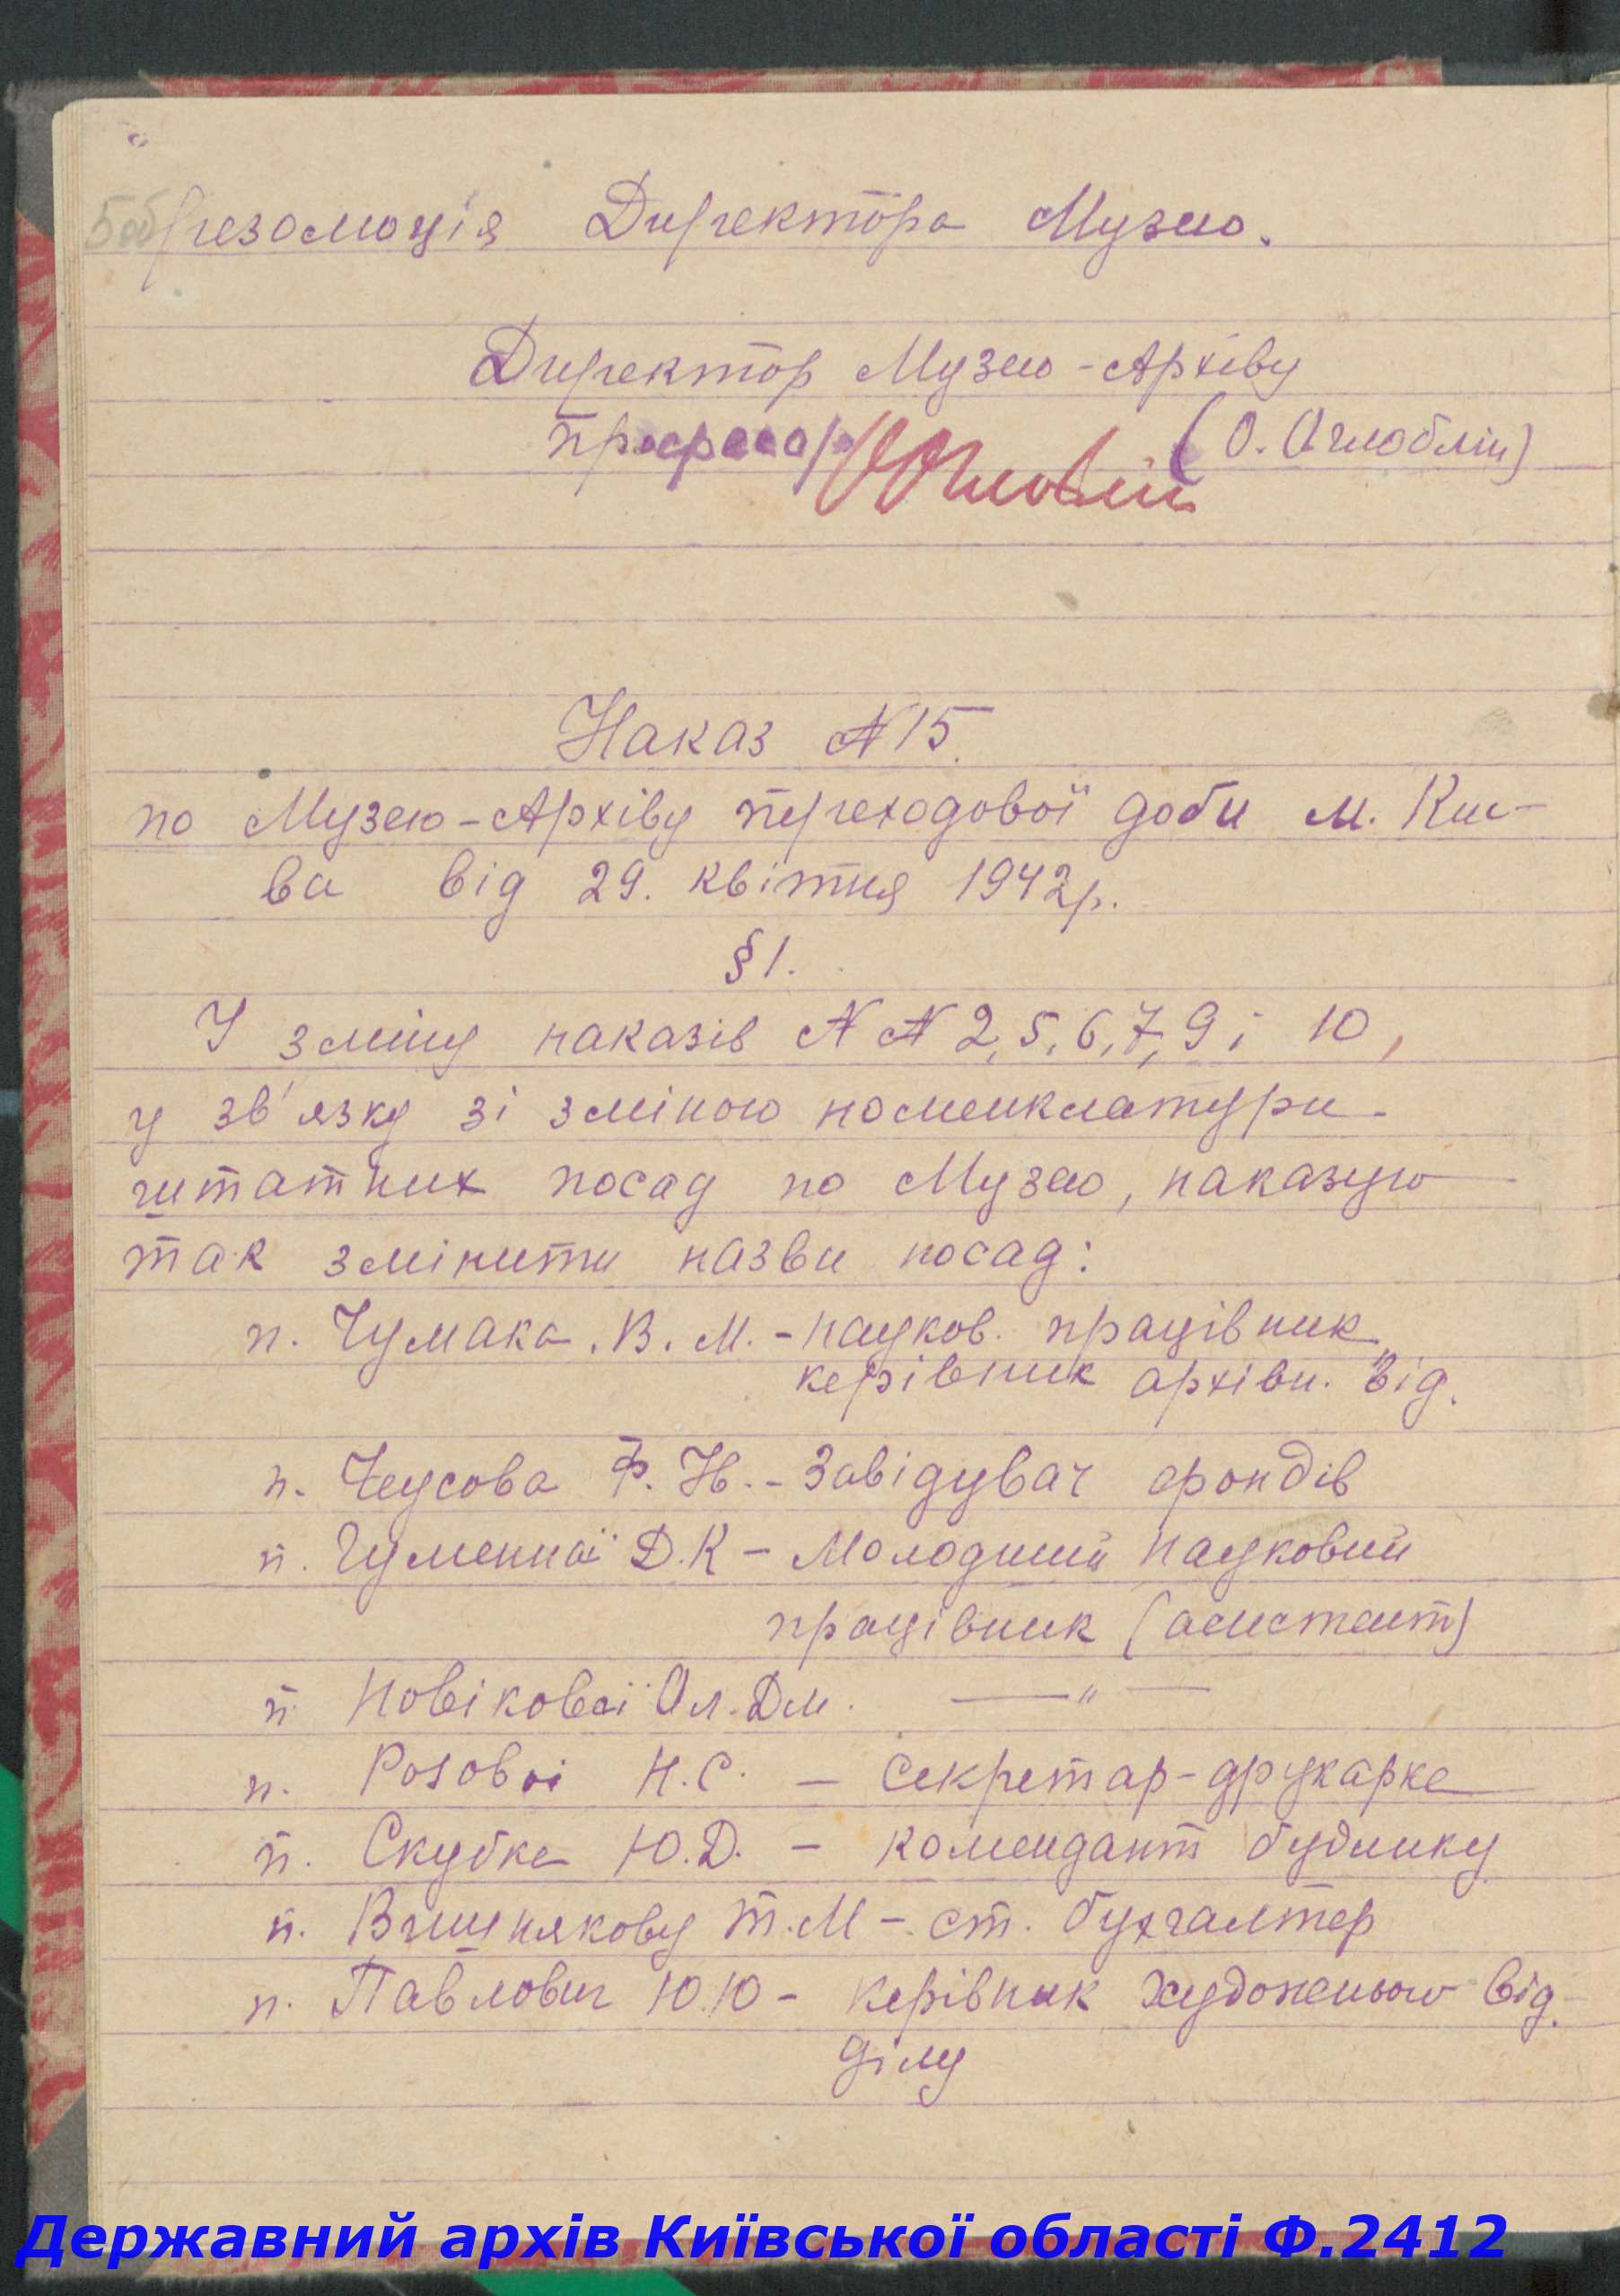 5об
резолюція Директора Музею.
Директор Музею-Архіву
професор (О. Оглоблін)
Наказ №15.
по Музею-Архіву переходової доби м. Киє-
ва від 29. квітня 1942р.
§1.
У зміну наказів №№ 2, 5, 6, 7, 9 і 10,
у зв'язку зі зміною номенклатури
штатних посад по Музею, наказую
так змінити назви посад:
п. Чумака. В. М. - науков. працівник
керівник архівн. від.
п. Чеусова Ф. Н. - Завідувач фондів
п. Гуменної Д. К - Молодший науковий
працівник (асистент)
п. Новікової Ол. Дм. —„—
п. Розової Н. С. - секретар-друкарка
п. Скубка Ю. Д. - комендант будинку
п. Вишнякову Т. М - ст. бухгалтер
п. Павлович Ю. Ю - керівник художнього від-
ділу
Державний архів Київської області Ф.2412